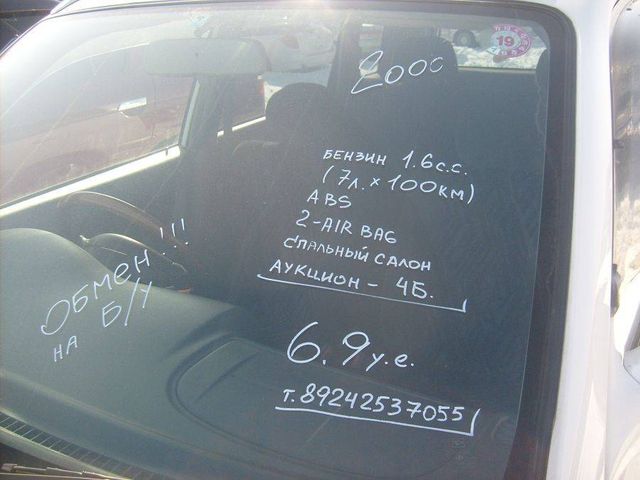 19
2000
БЕНЗИН 1.6 с.с.
(7л. х 100км)
ABS
2-AIR BAG
СПАЛЬНЫЙ САЛОН
АУКЦИОН - 4Б.
ОБМЕН !!!
НА Б/У
6.9 у.е.
т. 89242537055